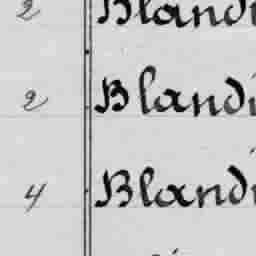 2 Blandi
2 Blandi
4 Blandi